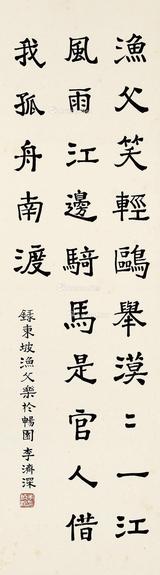 漁父笑輕鷗舉漠〻一江
風雨江邊騎馬是官人借
我孤舟南渡
錄東坡漁父樂於暢園 李濟深